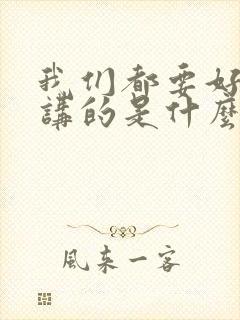 我们都要好
講的是什麼
風来一客